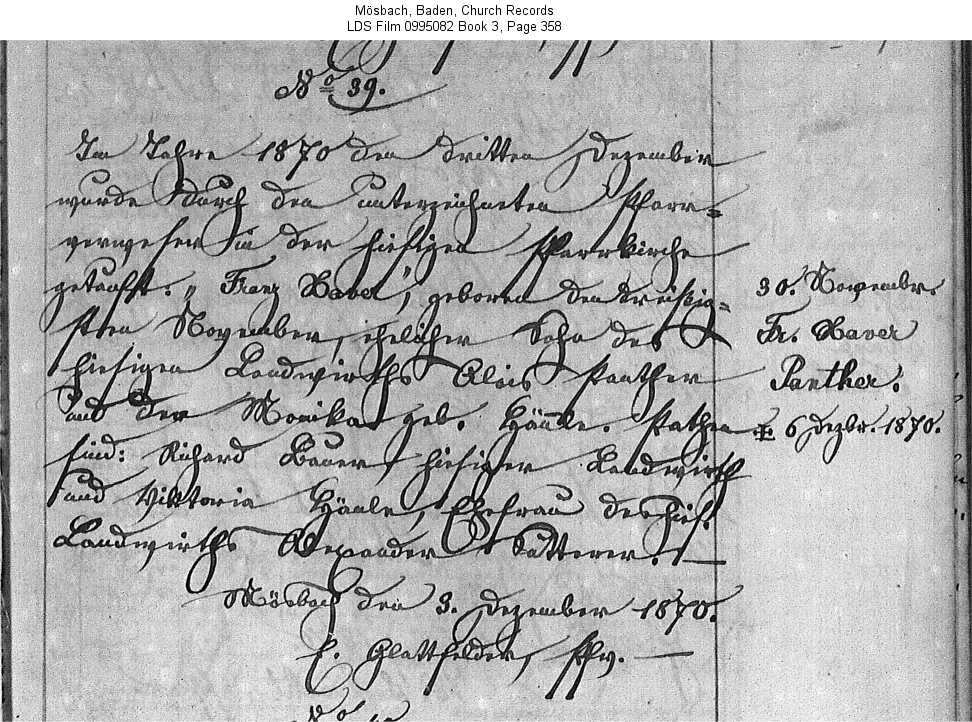 Mösbach, Baden, Church Records
LDS Film 0995082 Book 3, Page 358
No 39.
Im Jahre 1870 den dritten Dezember
wurde durch den unterzeichneten Pfarr=
verweser in der hiesigen Pfarrkirche
getauft: „Franz Xaver", geboren den dreißig=
sten November, ehelicher Sohn des
hiesigen Landwirths Alois Panther
und der Monika geb. Hänle. Pathen
sind: Richard Bauer, hiesiger Landwirth
und Viktoria Hänle, Ehefrau des hies.
Landwirths Alexander Sutterer. —
Mösbach den 3. Dezember 1870.
Glattfelder, Pfv. —
30. Novembr.
Fr. Xaver
Panther.
6 Dezbr. 1870.
No